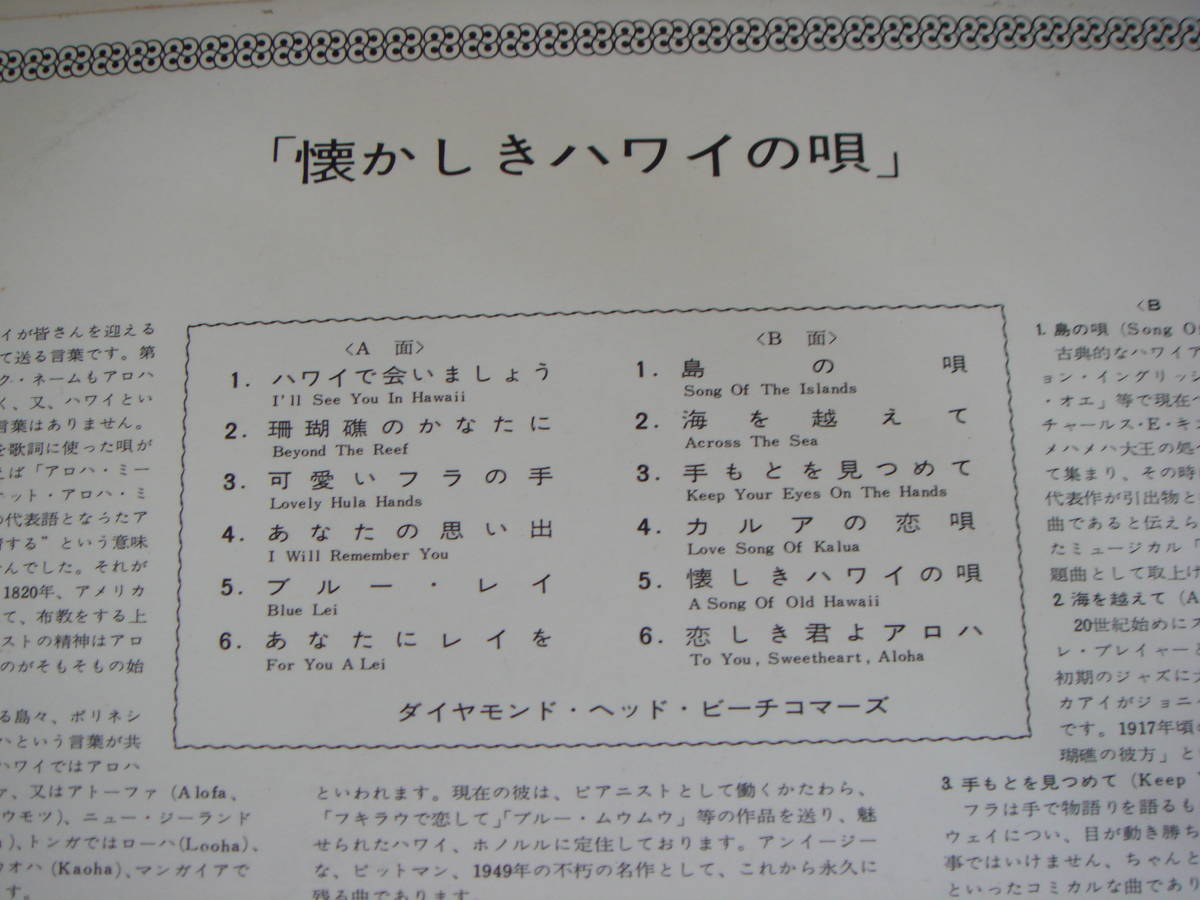 「懐かしきハワイの唄」
イが皆さんを迎える
て送る言葉です。第
ク・ネームもアロハ
く、又、ハワイとい
言葉はありません。
を歌詞に使った唄が
えば「アロハ・ミー
ケット・アロハ・ミ
の代表語となったア
する”という意味
んでした。それが
1820年、アメリカ
て、布教をする上
ストの精神はアロ
のがそもそもの始
る島々、ポリネシ
ハという言葉が共
ハワイではアロハ
ァ、又はアトーファ (Alofa、
ウモツ)、ニュー・ジーランド
)、トンガではローハ(Looha)、
ウオハ (Kaoha)、マンガイアで
す。
〈A 面〉
1. ハワイで会いましょう
I'll See You In Hawaii
2. 珊瑚礁のかなたに
Beyond The Reef
3. 可愛いフラの手
Lovely Hula Hands
4. あなたの思い出
I Will Remember You
5. ブルー・レイ
Blue Lei
6. あなたにレイを
For You A Lei
〈B 面〉
1. 島の唄
Song Of The Islands
2. 海を越えて
Across The Sea
3. 手もとを見つめて
Keep Your Eyes On The Hands
4. カルアの恋唄
Love Song Of Kalua
5. 懐しきハワイの唄
A Song Of Old Hawaii
6. 恋しき君よアロハ
To You, Sweetheart, Aloha
ダイヤモンド・ヘッド・ビーチコマーズ
といわれます。現在の彼は、ピアニストとして働くかたわら、
「フキラウで恋して」「ブルー・ムウムウ」等の作品を送り、魅
せられたハワイ、ホノルルに定住しております。アンイージー
な、ピットマン、1949年の不朽の名作として、これから永久に
残る曲であります。
〈B
1. 島の唄 (Song O
古典的なハワイア
ョン・イングリッシ
・オエ」等で現在へ
チャールス・E・キン
メハメハ大王の処へ
て集まり、その時
代表作が引出物と
曲であると伝えら
たミュージカル「
題曲として取上げ
2. 海を越えて (A
20世紀始めにス
レ・プレイヤーと
初期のジャズに
カアイがジョニ
です。1917年頃の
瑚礁の彼方」と
3. 手もとを見つめて (Keep
フラは手で物語りを語るも
ウェイについ、目が動き勝ち
事ではいけません、ちゃんと
といったコミカルな曲であり